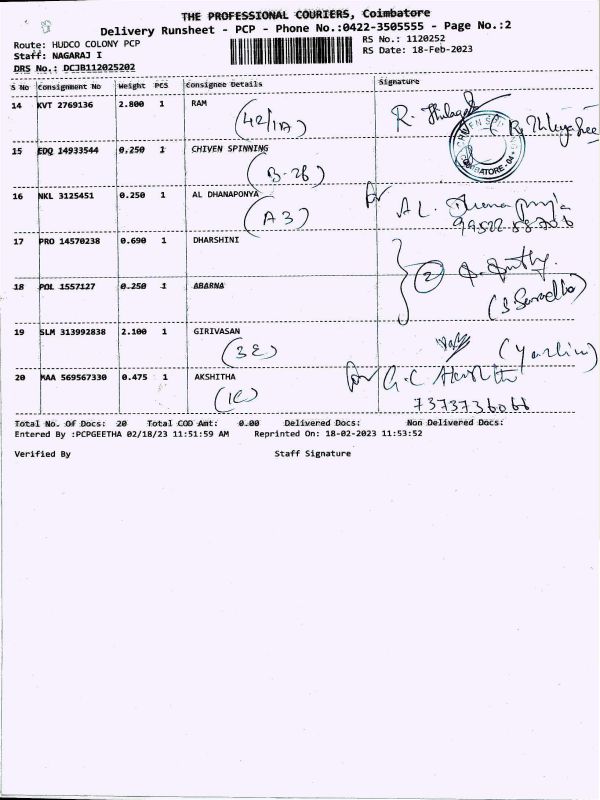 THE PROFESSIONAL COURIERS, Coimbatore
Delivery Runsheet - PCP - Phone No.:0422-3505555 - Page No.:2
Route: HUDCO COLONY PCP
RS No.: 1120252
Staff: NAGARAJ I
RS Date: 18-Feb-2023
DRS No.: DCJB112025202
S No Consignment No Weight PCS Consignee Details Signature
14 KVT 2769136 2.800 1 RAM
(42/1A)
15 EDQ 14933544 0.250 1 CHIVEN SPINNING
(B-2B)
16 NKL 3125451 0.250 1 AL DHANAPONYA for AL.
(A3)
17 PRO 14570238 0.690 1 DHARSHINI
(2)
18 POL 1557127 0.250 1 ABARNA
19 SLM 313992838 2.100 1 GIRIVASAN
(3E)
20 MAA 569567330 0.475 1 AKSHITHA for G.C
(1C) 7373736066
Total No. Of Docs: 20 Total COD Amt: 0.00 Delivered Docs: Non Delivered Docs:
Entered By :PCPGEETHA 02/18/23 11:51:59 AM Reprinted On: 18-02-2023 11:53:52
Verified By Staff Signature